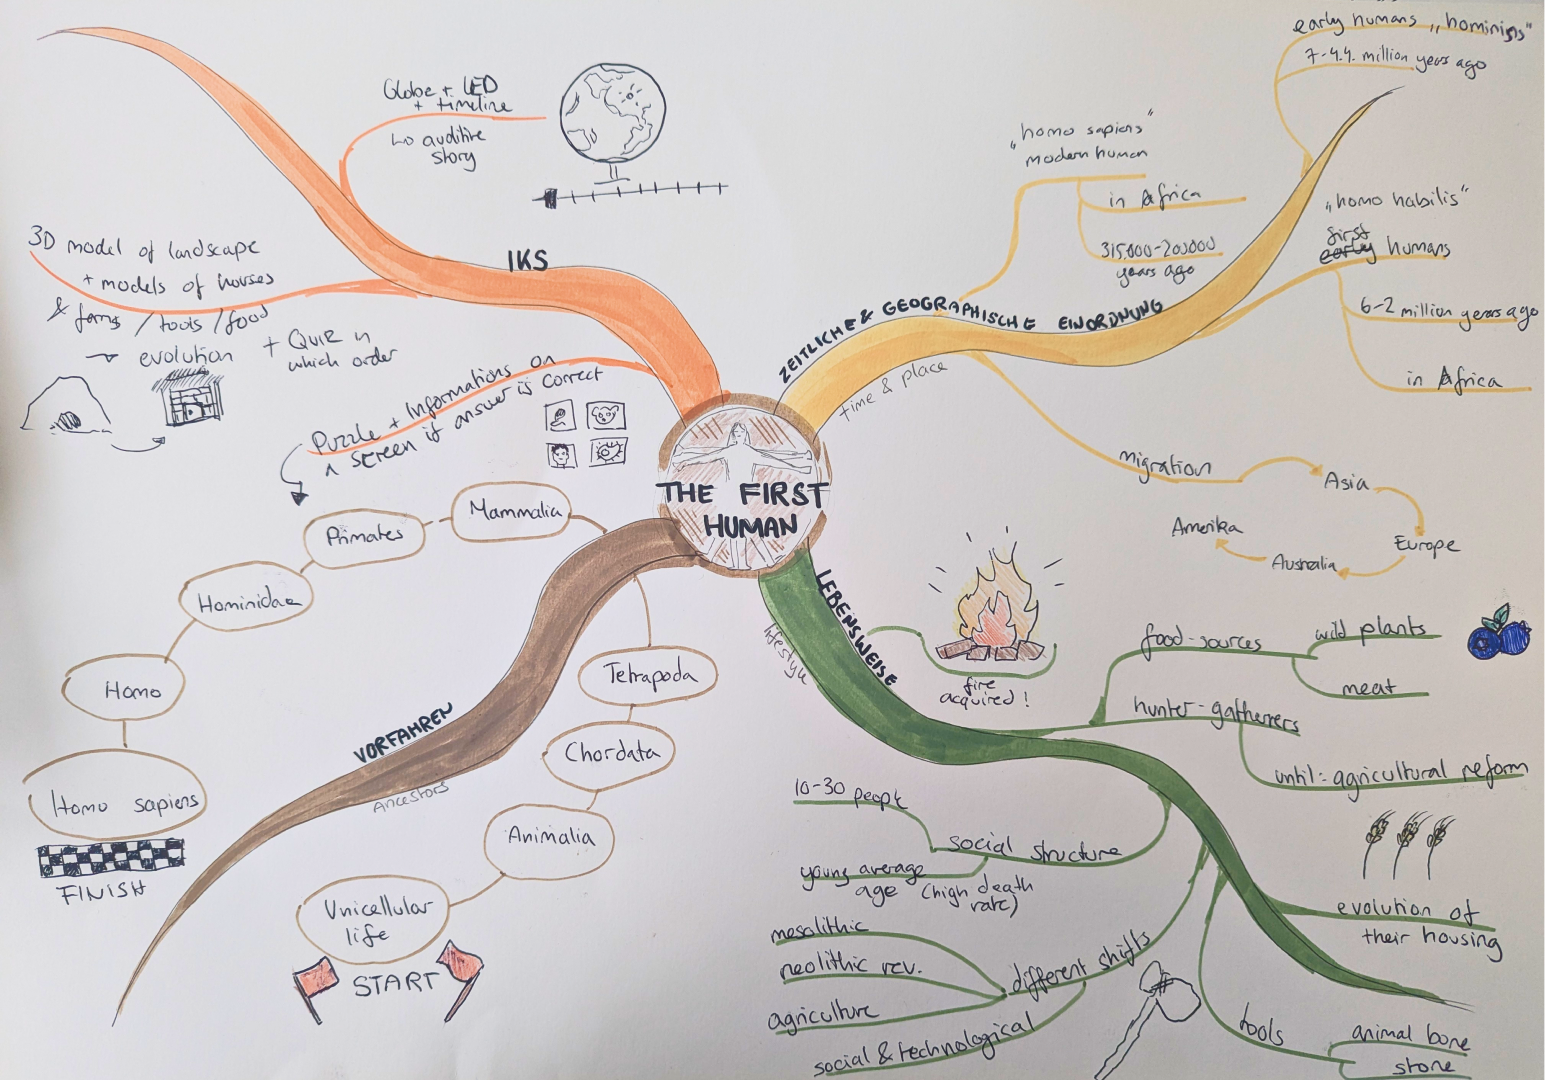 THE FIRST
HUMAN
IKS
Globe + LED
+ timeline
↳ auditive
story
3D model of landscape
+ models of houses
& farms / tools / food
→ evolution
+ Quiz in
which order
Puzzle + Informations on
a screen if answer is correct
ZEITLICHE & GEOGRAPHISCHE EINORDNUNG
time & place
early humans „hominins"
7-4.4. million years ago
„homo sapiens"
modern human
in Africa
315.000-200.000
years ago
„homo habilis"
first
early humans
6-2 million years ago
in Africa
migration
Asia
Europe
Australia
Amerika
VORFAHREN
Ancestors
Mammalia
Primates
Hominidae
Homo
Homo sapiens
FINISH
Tetrapoda
Chordata
Animalia
Unicellular
life
START
LEBENSWEISE
lifestyle
fire
acquired!
food-sources
wild plants
meat
hunter-gatherers
until: agricultural reform
10-30 people
social structure
young average
age (high death
rate)
mesolithic
neolithic rev.
agriculture
social & technological
different shifts
evolution of
their housing
tools
animal bone
stone